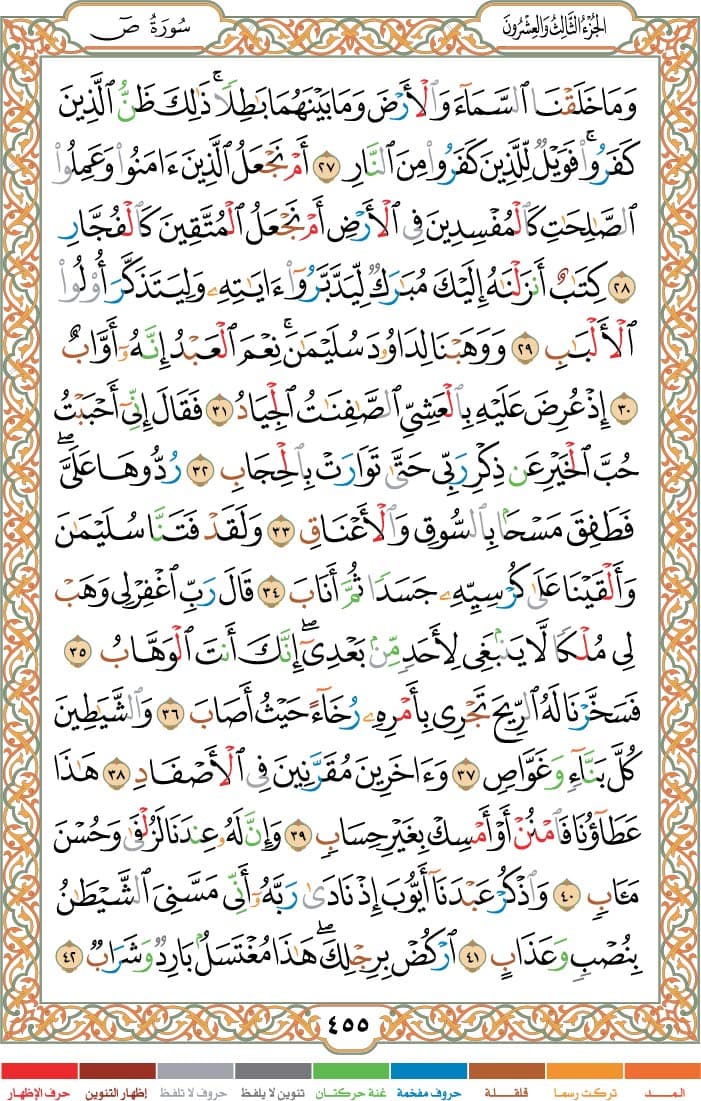 الجزء الثالث والعشرون
سورة ص
وَمَا خَلَقْنَا السَّمَآءَ وَالْأَرْضَ وَمَا بَيْنَهُمَا بَٰطِلًا ۚ ذَٰلِكَ ظَنُّ الَّذِينَ
كَفَرُوا۟ ۚ فَوَيْلٌ لِّلَّذِينَ كَفَرُوا۟ مِنَ النَّارِ ٢٧ أَمْ نَجْعَلُ الَّذِينَ ءَامَنُوا۟ وَعَمِلُوا۟
الصَّٰلِحَٰتِ كَالْمُفْسِدِينَ فِى الْأَرْضِ أَمْ نَجْعَلُ الْمُتَّقِينَ كَالْفُجَّارِ
٢٨ كِتَٰبٌ أَنزَلْنَٰهُ إِلَيْكَ مُبَٰرَكٌ لِّيَدَّبَّرُوٓا۟ ءَايَٰتِهِۦ وَلِيَتَذَكَّرَ أُو۟لُوا۟
الْأَلْبَٰبِ ٢٩ وَوَهَبْنَا لِدَاوُۥدَ سُلَيْمَٰنَ ۚ نِعْمَ الْعَبْدُ إِنَّهُۥٓ أَوَّابٌ
٣٠ إِذْ عُرِضَ عَلَيْهِ بِالْعَشِىِّ الصَّٰفِنَٰتُ الْجِيَادُ ٣١ فَقَالَ إِنِّىٓ أَحْبَبْتُ
حُبَّ الْخَيْرِ عَن ذِكْرِ رَبِّى حَتَّىٰ تَوَارَتْ بِالْحِجَابِ ٣٢ رُدُّوهَا عَلَىَّ ۖ
فَطَفِقَ مَسْحًۢا بِالسُّوقِ وَالْأَعْنَاقِ ٣٣ وَلَقَدْ فَتَنَّا سُلَيْمَٰنَ
وَأَلْقَيْنَا عَلَىٰ كُرْسِيِّهِۦ جَسَدًا ثُمَّ أَنَابَ ٣٤ قَالَ رَبِّ اغْفِرْ لِى وَهَبْ
لِى مُلْكًا لَّا يَنۢبَغِى لِأَحَدٍ مِّنۢ بَعْدِىٓ ۖ إِنَّكَ أَنتَ الْوَهَّابُ ٣٥
فَسَخَّرْنَا لَهُ الرِّيحَ تَجْرِى بِأَمْرِهِۦ رُخَآءً حَيْثُ أَصَابَ ٣٦ وَالشَّيَٰطِينَ
كُلَّ بَنَّآءٍ وَغَوَّاصٍ ٣٧ وَءَاخَرِينَ مُقَرَّنِينَ فِى الْأَصْفَادِ ٣٨ هَٰذَا
عَطَآؤُنَا فَامْنُنْ أَوْ أَمْسِكْ بِغَيْرِ حِسَابٍ ٣٩ وَإِنَّ لَهُۥ عِندَنَا لَزُلْفَىٰ وَحُسْنَ
مَـَٔابٍ ٤٠ وَاذْكُرْ عَبْدَنَآ أَيُّوبَ إِذْ نَادَىٰ رَبَّهُۥٓ أَنِّى مَسَّنِىَ الشَّيْطَٰنُ
بِنُصْبٍ وَعَذَابٍ ٤١ ارْكُضْ بِرِجْلِكَ ۖ هَٰذَا مُغْتَسَلٌۢ بَارِدٌ وَشَرَابٌ ٤٢
٤٥٥
المــد تركت رسما قلقلة حروف مفخمة غنة حركتان تنوين لا يلفظ حروف لا تلفظ إظهار التنوين حرف الإظهار